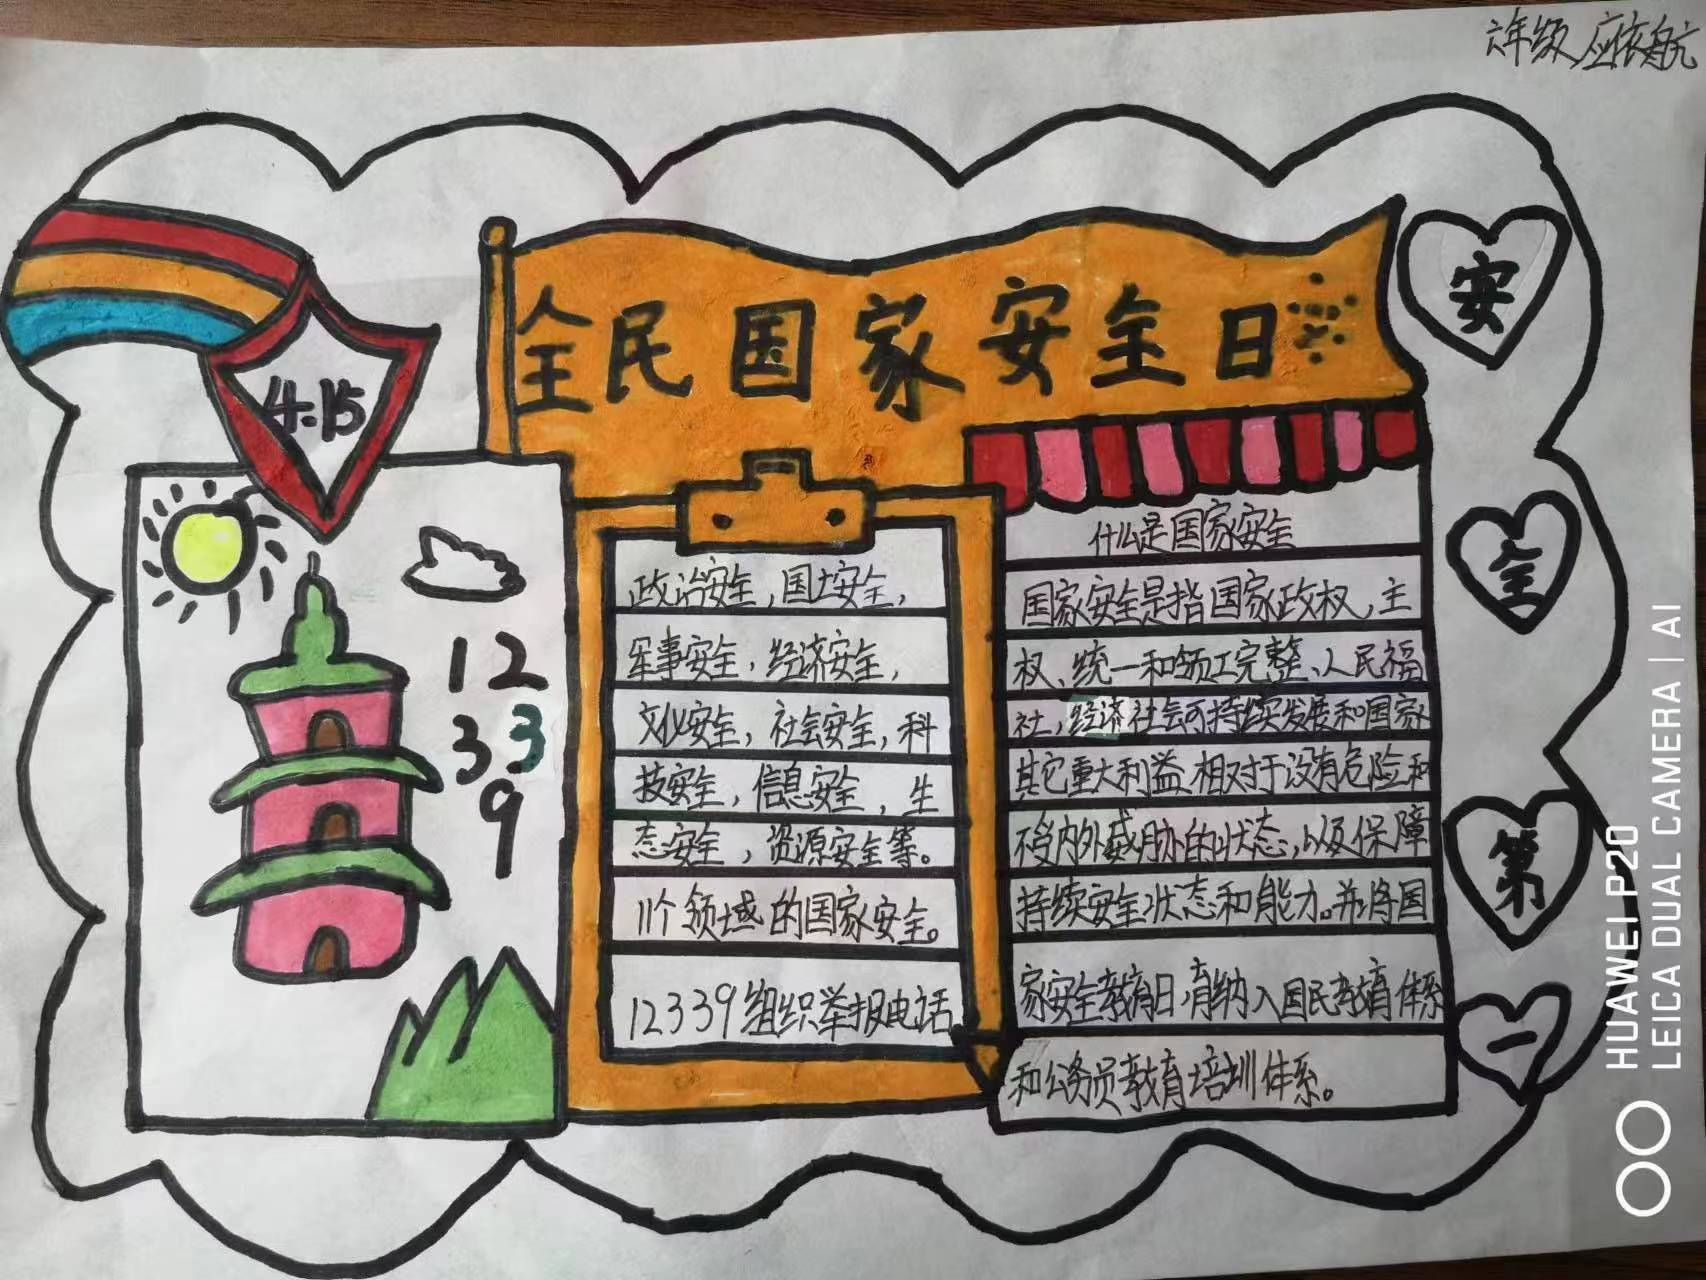 六年级 应依航
全民国家安全日
4.15
12
33
9
政治安全，国土安全，
军事安全，经济安全，
文化安全，社会安全，科
技安全，信息安全，生
态安全，资源安全等。
11个领域的国家安全。
12339组织举报电话
什么是国家安全
国家安全是指国家政权、主
权、统一和领工完整、人民福
社，经济社会可持续发展和国家
其它重大利益相对于没有危险和
不受内外威胁的状态，以及保障
持续安全状态和能力。并将国
家安全教育日，育纳入国民教育体系
和公务员教育培训体系。
安
全
第
一
HUAWEI P20
LEICA DUAL CAMERA | AI